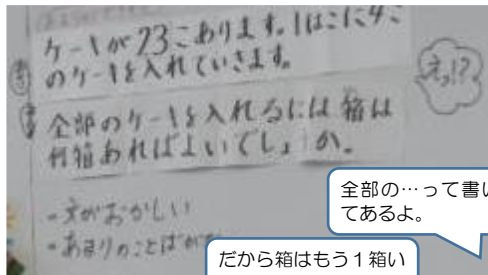 ケーキが23こあります。1はこに4こ
のケーキを入れていきます。
えっ!?
全部のケーキを入れるには箱は
何箱あればよいでしょうか。
・文がおかしい
・あまりのことばが
全部の…って書い
てあるよ。
だから箱はもう1箱い